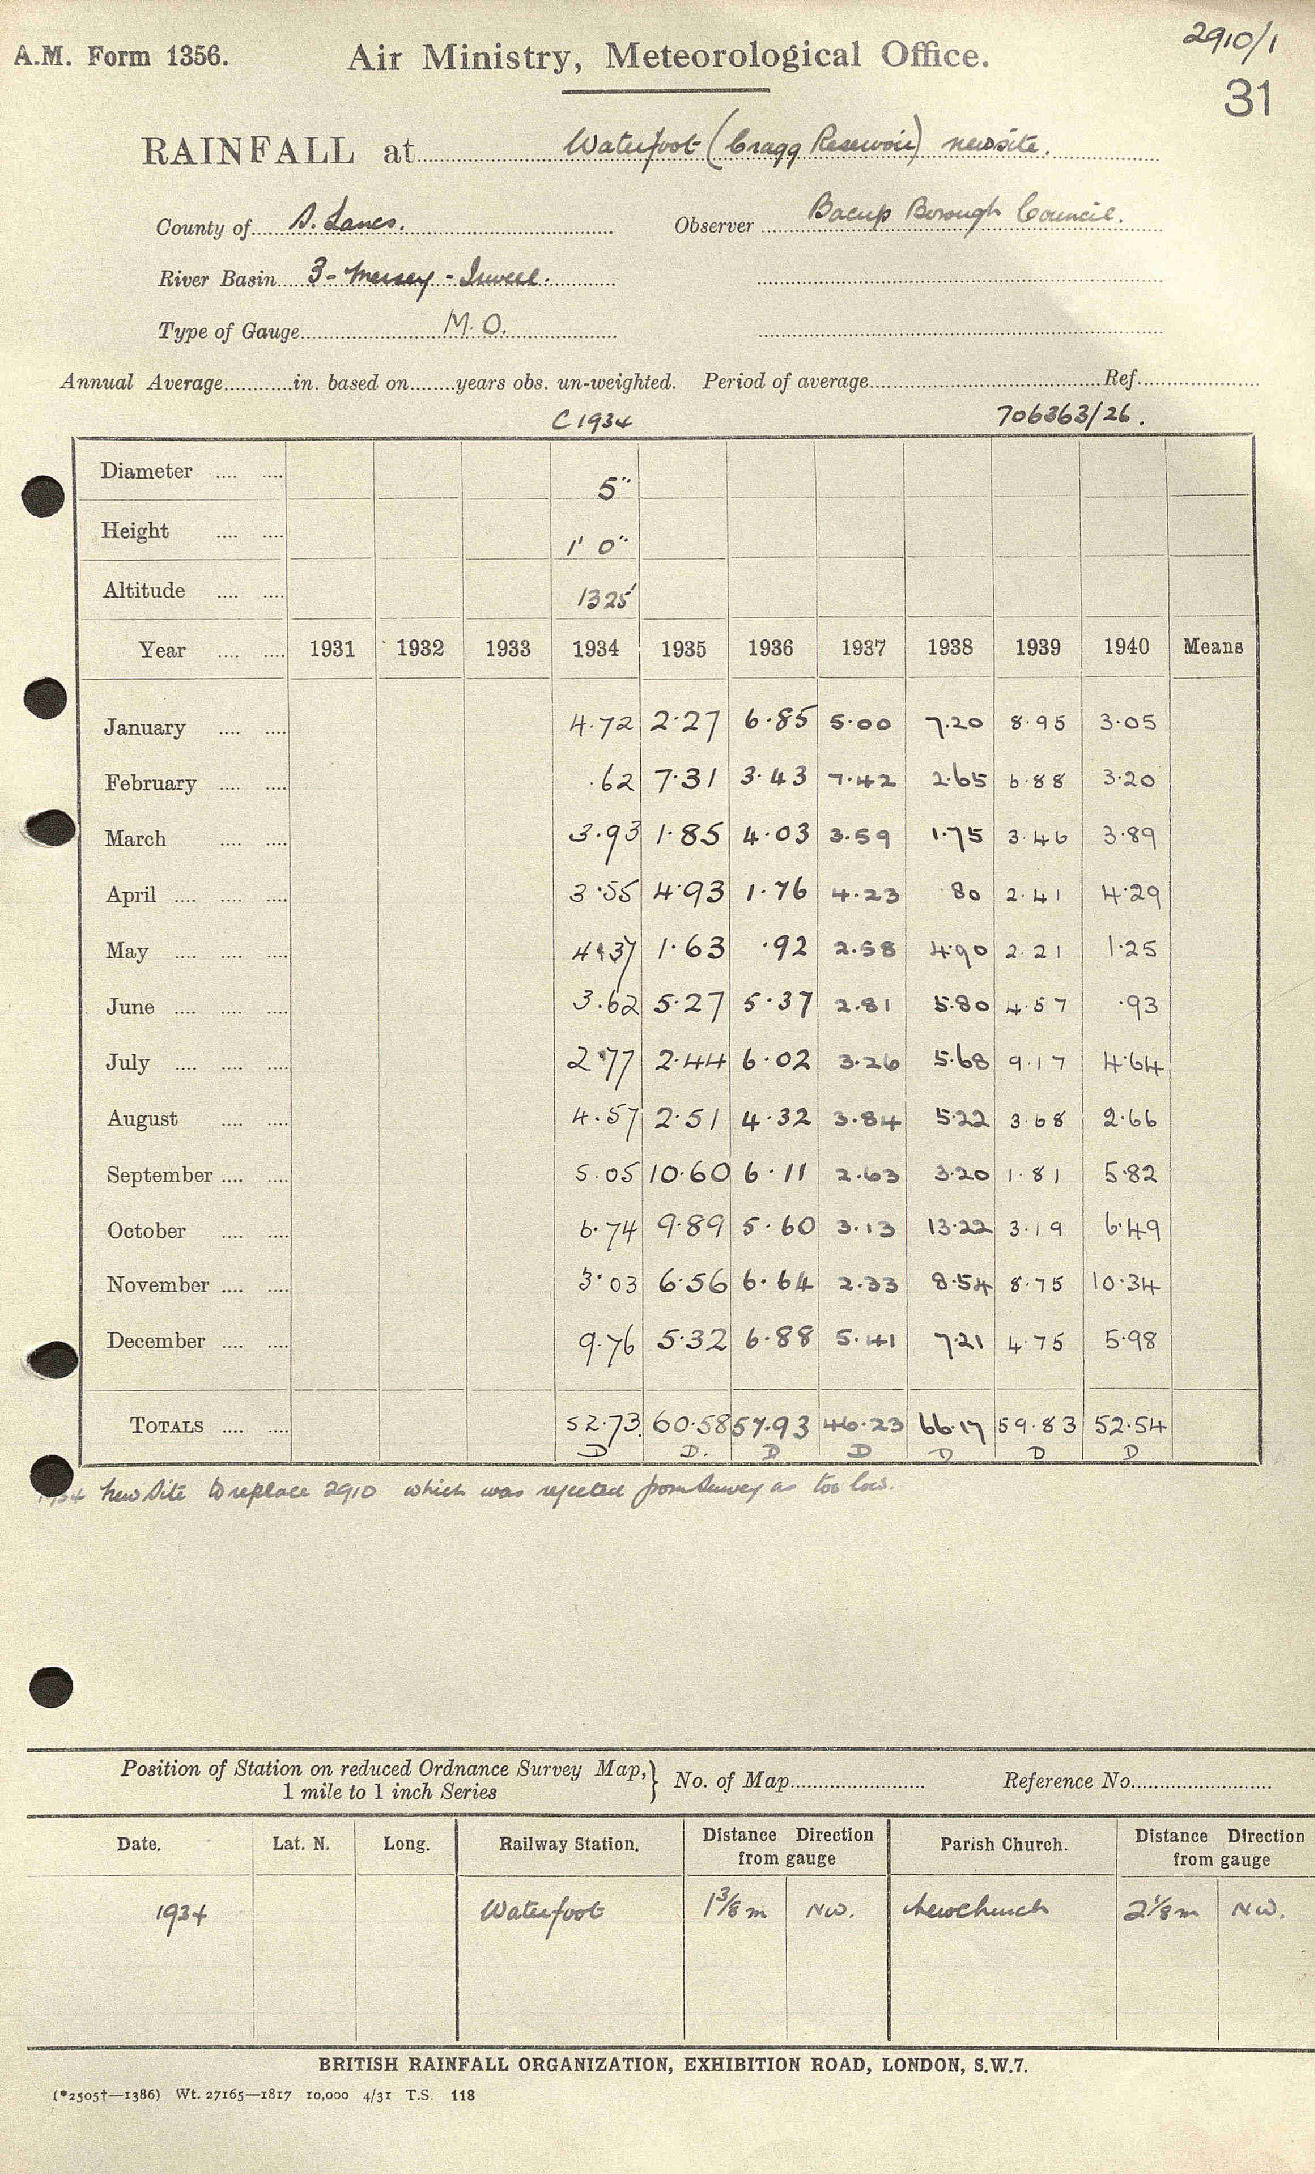 2910/1
A.M. Form 1356. Air Ministry, Meteorological Office.
31
RAINFALL at Waterfoot (Cragg Reservoir) new site.
County of S. Lancs. Observer Bacup Borough Council.
River Basin 3 - Mersey - Irwell.
Type of Gauge M.O.
Annual Average in. based on years obs. un-weighted. Period of average Ref.
C 1934 706363/26.
Diameter 5"
Height 1' 0"
Altitude 1325
Year 1931 1932 1933 1934 1935 1936 1937 1938 1939 1940 Means
January 4.72 2.27 6.85 5.00 7.20 8.95 3.05
February .62 7.31 3.43 7.42 2.65 6.88 3.20
March 3.93 1.85 4.03 3.59 1.75 3.46 3.89
April 3.55 4.93 1.76 4.23 .80 2.41 4.29
May 4.37 1.63 .92 2.58 4.90 2.21 1.25
June 3.62 5.27 5.37 2.81 5.80 4.57 .93
July 2.77 2.44 6.02 3.26 5.68 9.17 4.64
August 4.57 2.51 4.32 3.84 5.22 3.68 2.66
September 5.05 10.60 6.11 2.63 3.20 1.81 5.82
October 6.74 9.89 5.60 3.13 13.22 3.19 6.49
November 3.03 6.56 6.64 2.33 8.54 8.75 10.34
December 9.76 5.32 6.88 5.41 7.21 4.75 5.98
TOTALS 52.73 60.58 57.93 46.23 66.17 59.83 52.54
D D. D D D D D
1934 New Site to replace 2910 which was rejected from Survey as too low.
Position of Station on reduced Ordnance Survey Map,
1 mile to 1 inch Series } No. of Map Reference No.
Date. Lat. N. Long. Railway Station. Distance Direction from gauge Parish Church. Distance Direction from gauge
1934 Waterfoot 1 3/8 m NW. Newchurch 2 1/8 m NW.
BRITISH RAINFALL ORGANIZATION, EXHIBITION ROAD, LONDON, S.W.7.
(*2505†—1386) Wt. 27165—1817 10,000 4/31 T.S. 118